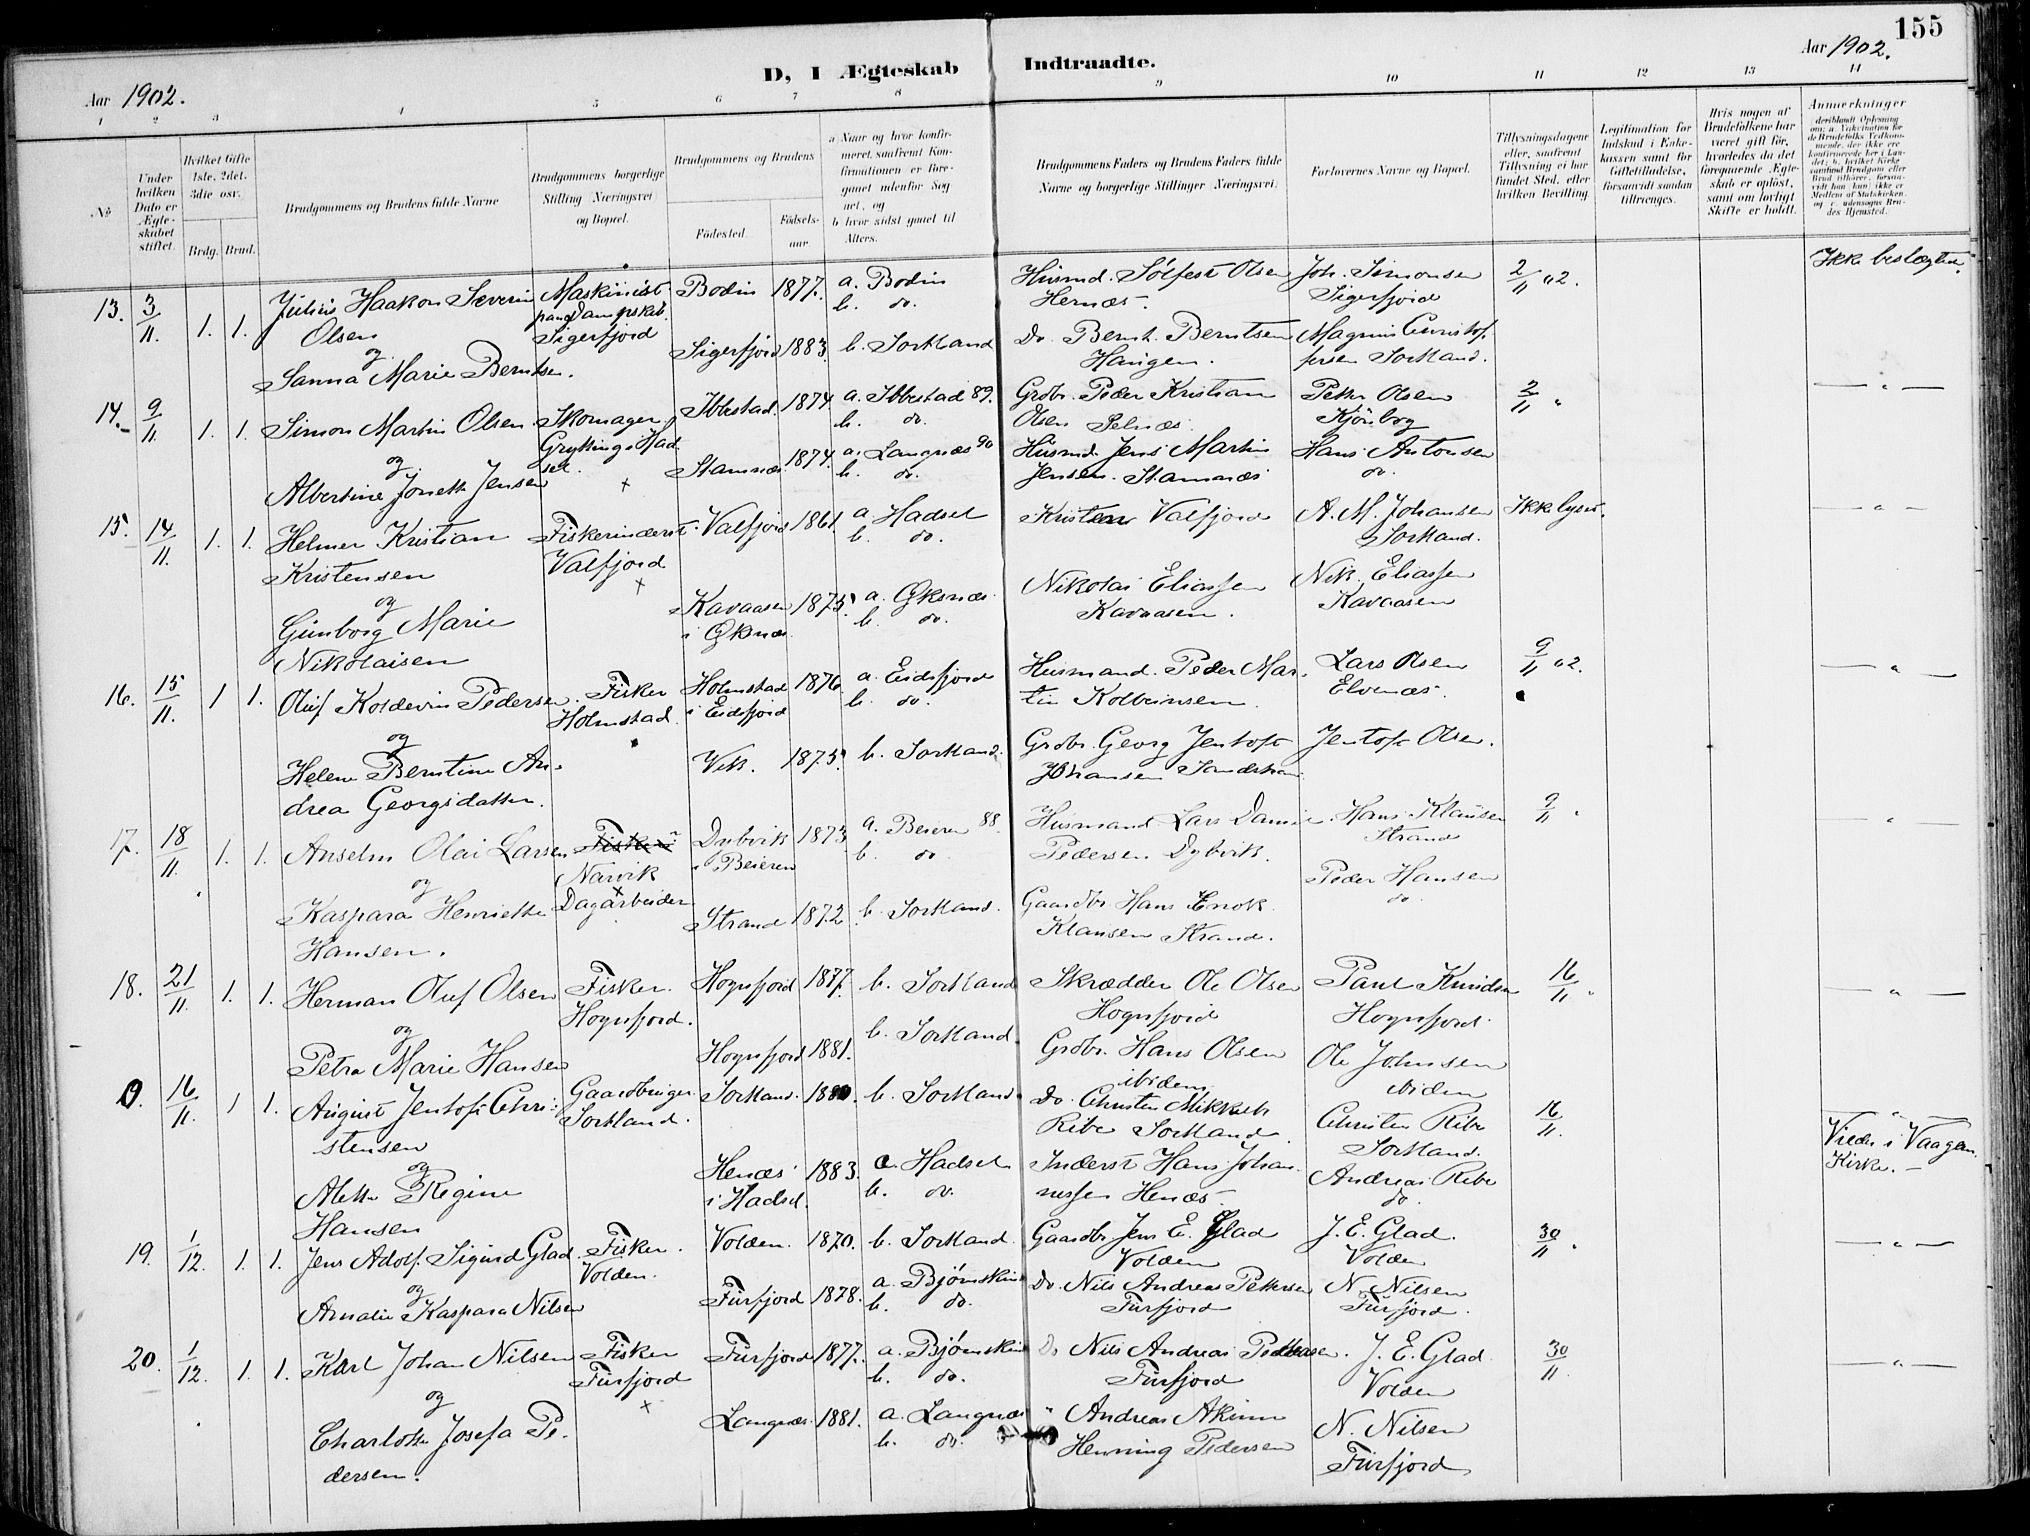 155
Aar 1902.
D, I Ægteskab Indtraadte.
Aar 1902.
1 2 3 4 5 6 7 8 9 10 11 12 13 14
No
Under hvilken Dato er Ægteskabet stiftet.
Hvilket Gifte 1ste, 2det, 3die osv.
Brdg. Brud.
Brudgommens og Brudens fulde Navne
Brudgommens borgerlige Stilling Næringsvei og Bopæl.
Brudgommens og Brudens
Födested.
Födselsaar.
a Naar og hvor konfirmeret, saafremt Konfirmationen er foregaaet udenfor Sognet, og
b hvor sidst gaaet til Alters.
Brudgommens Faders og Brudens Faders fulde Navne og borgerlige Stillinger Næringsvei.
Forlovernes Navne og Bopæl.
Tillysningsdagene eller, saafremt Tillysning ei har fundet Sted, efter hvilken Bevilling.
Legitimation for Indskud i Enkekassen samt for Giftetilladelse, forsaavidt saadan tiltrænges.
Hvis nogen af Brudefolkene har været gift för, hvorledes da det foregaaende Ægteskab er oplöst, samt om lovligt Skifte er holdt.
Anmerkninger
13. 3/11. 1. 1. Julius Haakon Severin Olsen
og
Sanna Marie Berntsen.
Maskinist paa Dampskib. Sigerfjord
Bodin 1877. a. Bodin b. do.
Sigerfjord 1883. b. Sortland
Husmd. Sölfest Olsen Hernæs.
Do. Bernt. Berntsen Haugen.
Joh. Simonsen Sigerfjord
Magnus Christoffersen Sortland.
2/11 02.
Ikke beslægtede.
14. 9/11. 1. 1. Simon Martin Olsen
og
Albertine Jonette Jensen
Skomager Grytting i Hadsel. x
Ibbestad. 1874. a. Ibbestad 89. b. do.
Stamnæs 1874. a. Langnæs 90 b. do.
Grdbr. Peder Kristian Olsen Selnæs.
Husmd. Jens Martin Jensen. Stamnæs
Petter Olsen Kjönbog
Hans Antonsen do.
2/11 "
— " —
15. 14/11. 1. 1. Helmer Kristian Kristensen
og
Gunborg Marie Nikolaisen
Fiskerinderst Valfjord x
Valfjord 1861. a. Hadsel b. do.
Kavaasen i Øksnæs 1875. a. Øksnæs b. do.
Kristen Valfjord
Nikolai Eliassen Kavaasen.
A. M. Johansen Sortland.
Nik. Eliassen Kavaasen
Ikke lyst.
— " —
16. 15/11. 1 1. Oluf Koldevin Pedersen
og
Helene Berntine Andrea Georgsdatter.
Fisker Holmstad.
Holmstad i Eidsfjord 1876 a. Eidsfjord b. do.
Vik. 1875. b. Sortland.
Husmand. Peder Martin Kolbeinsen.
Grdbr. Georg Jentoft Johansen
Lars Olsen Elvenæs.
Jentoft Olsen.
9/11 02.
— " —
17. 18/11. 1. 1. Anselm Olai Larsen
og
Kaspara Henriette Hansen.
Fisker Narvik x Dagarbeider
Dybvik i Beieren 1873 a. Beieren 88. b. do.
Strand 1872 b. Sortland.
Husmand Lars Daniel Pedersen Dybvik.
Gaardbr Hans Enok Klausen Strand.
Hans Klausen Strand
Peder Hansen do.
9/11 "
— " —
18. 21/11. 1. 1. Herman Oluf Olsen
og
Petra Marie Hansen
Fisker. Hognfjord.
Hognfjord 1877. b. Sortland
Hognfjord 1881. b. Sortland.
Skrædder Ole Olsen Hognfjord
Grdbr. Hans Olsen ibidem
Paul Knudsen Hognfjord.
Ole Johnsen ibidem
16/11 "
— " —
0. 16/11. 1 1. August Jentoft Christensen
og
Alette Regine Hansen
Gaardbruger Sortland.
Sortland. b. Sortland.
Henæs i Hadsel. 1883. a. Hadsel b. do.
Do. Christen Mikkels Ribe Sortland.
Inderst Hans Johannessen Henæs
Christen Ribe Sortland.
Andreas Ribe do.
16/11.
— " —
Viede i Vaagan Kirke. —
19. 1/12. 1. 1. Jens Adolf. Sigurd Glad
og
Amalie Kaspara Nilsen
Fisker. Volden.
Volden. 1870. b. Sortland.
Furfjord 1878. a. Bjørnskin b. do.
Gaardbr Jens E. Glad Volden
Do. Nils Andreas Pettersen Furfjord
J. E. Glad. Volden
N. Nilsen Furfjord.
30/11 "
— " —
20. 1/12. 1. 1. Karl Johan Nilsen
og
Charlotte Josefa Pedersen.
Fisker Furfjord x
Furfjord 1877. a. Bjørnskin b. do.
Langnæs 1881. a. Langnæs b. do.
Do Nils Andreas Furfjord
" Andreas Henning Pedersen
J. E. Glad. Volden
N. Nilsen Furfjord
30/11.
— " —